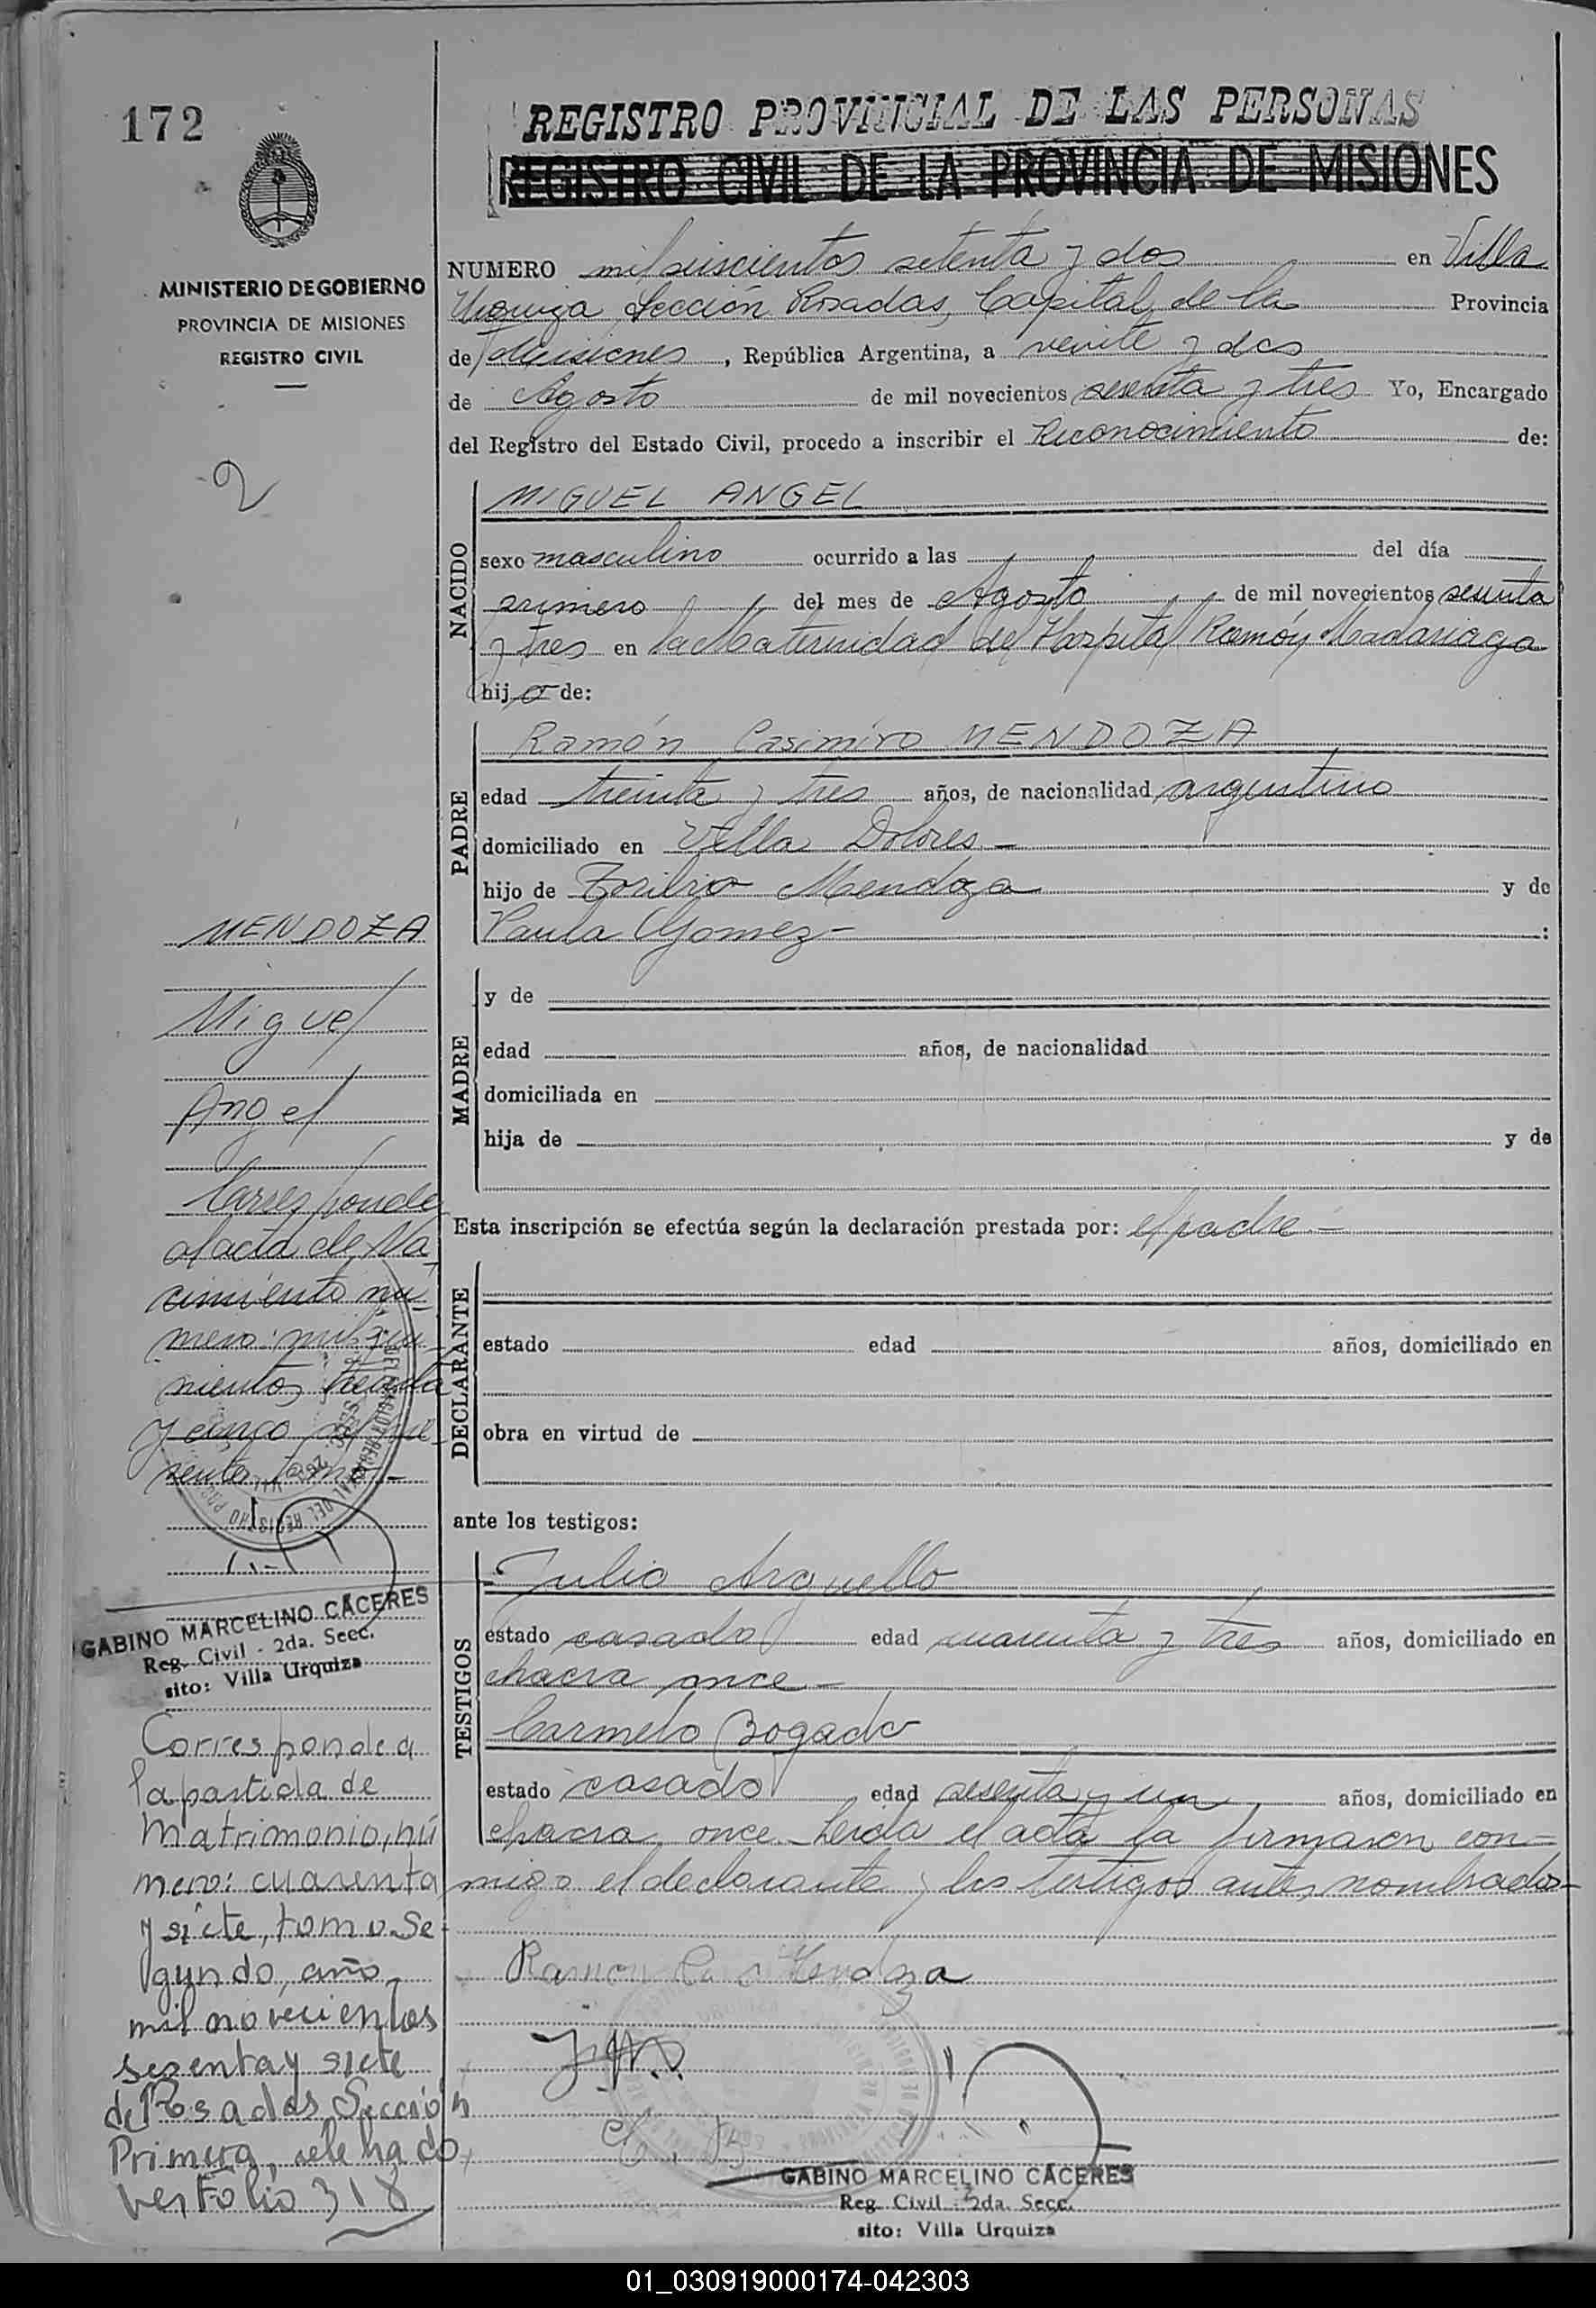 172
MINISTERIO DE GOBIERNO
PROVINCIA DE MISIONES
REGISTRO CIVIL
2
MENDOZA
Miguel
Angel
Corresponde
al acta de Na
cimiento nú-
mero: mil qui
nientos treinta
y cinco del pre
sente tomo.-
GABINO MARCELINO CÁCERES
Reg. Civil - 2da. Secc.
sito: Villa Urquiza
Corresponde a
la partida de
matrimonio, nú
mero: cuarenta
y siete, tomo Se-
gundo, año
mil novecientos
sesenta y siete
de Posadas Sección
Primera,
ver Folio 318
REGISTRO PROVINCIAL DE LAS PERSONAS
REGISTRO CIVIL DE LA PROVINCIA DE MISIONES
NUMERO mil seiscientos setenta y dos en Villa
Urquiza Sección Posadas, Capital de la Provincia
de Misiones, República Argentina, a veinte y dos
de Agosto de mil novecientos sesenta y tres Yo, Encargado
del Registro del Estado Civil, procedo a inscribir el Reconocimiento de:
NACIDO
MIGUEL ANGEL
sexo masculino ocurrido a las del día
primero del mes de Agosto de mil novecientos sesenta
y tres en la Maternidad del Hospital Ramón Madariaga
hijo de:
PADRE
Ramón Casimiro MENDOZA
edad treinta y tres años, de nacionalidad argentino
domiciliado en Villa Dolores.-
hijo de Toribio Mendoza y de
Paula Gomez- :
MADRE
y de
edad años, de nacionalidad
domiciliada en
hija de y de
Esta inscripción se efectúa según la declaración prestada por: el padre.-
DECLARANTE
estado edad años, domiciliado en
obra en virtud de
ante los testigos:
TESTIGOS
Julio Arguello
estado casado edad cuarenta y tres años, domiciliado en
chacra once.-
Carmelo Bogado
estado casado edad sesenta y un años, domiciliado en
chacra once. Leida el acta la firmaron con-
migo el declarante y los testigos antes nombrados-
Ramon Mendoza
GABINO MARCELINO CÁCERES
Reg. Civil - 2da. Secc.
sito: Villa Urquiza
01_030919000174-042303